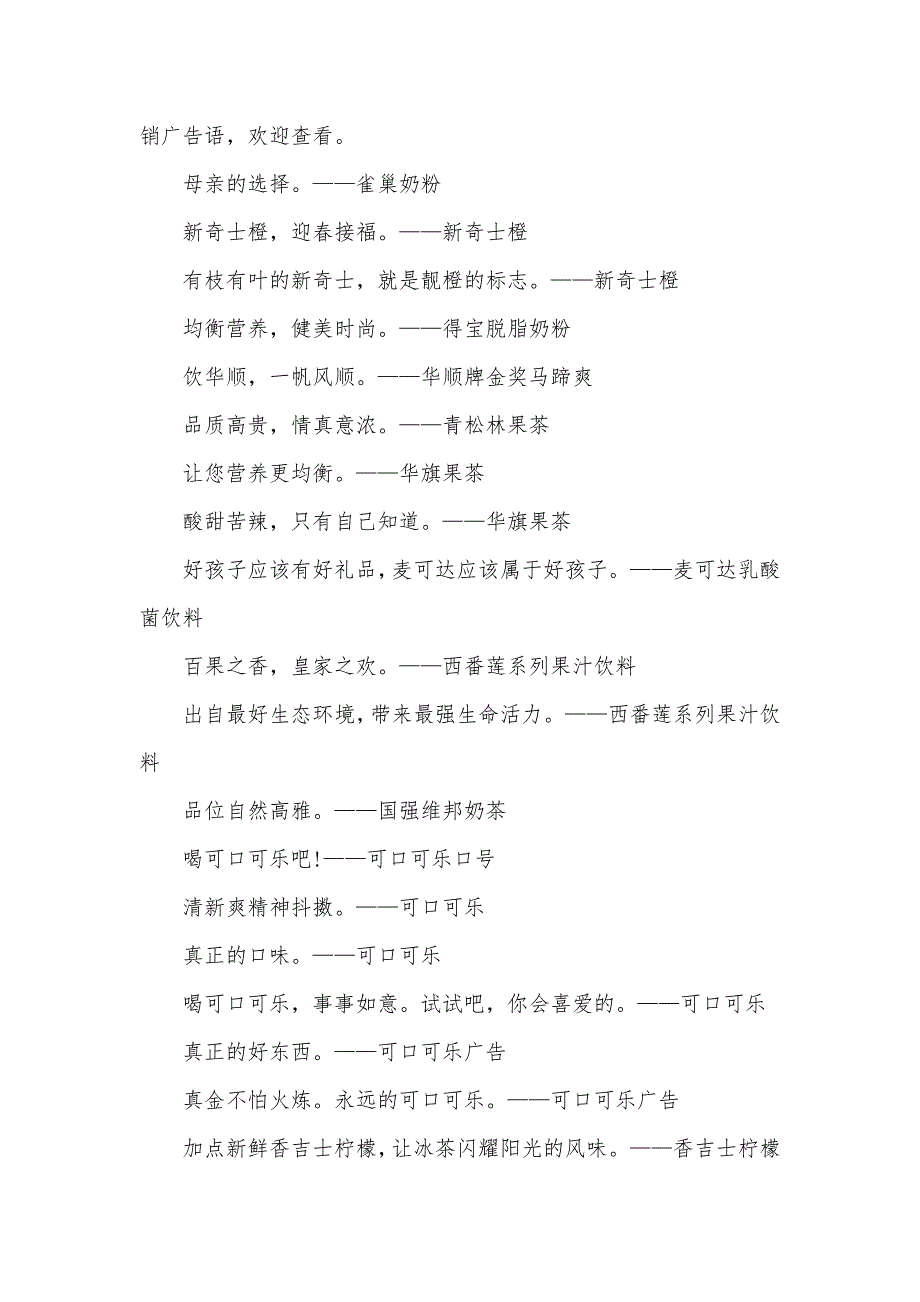 销广告语，欢迎查看。
母亲的选择。——雀巢奶粉
新奇士橙，迎春接福。——新奇士橙
有枝有叶的新奇士，就是靓橙的标志。——新奇士橙
均衡营养，健美时尚。——得宝脱脂奶粉
饮华顺，一帆风顺。——华顺牌金奖马蹄爽
品质高贵，情真意浓。——青松林果茶
让您营养更均衡。——华旗果茶
酸甜苦辣，只有自己知道。——华旗果茶
好孩子应该有好礼品，麦可达应该属于好孩子。——麦可达乳酸
菌饮料
百果之香，皇家之欢。——西番莲系列果汁饮料
出自最好生态环境，带来最强生命活力。——西番莲系列果汁饮
料
品位自然高雅。——国强维邦奶茶
喝可口可乐吧!——可口可乐口号
清新爽精神抖擞。——可口可乐
真正的口味。——可口可乐
喝可口可乐，事事如意。试试吧，你会喜爱的。——可口可乐
真正的好东西。——可口可乐广告
真金不怕火炼。永远的可口可乐。——可口可乐广告
加点新鲜香吉士柠檬，让冰茶闪耀阳光的风味。——香吉士柠檬